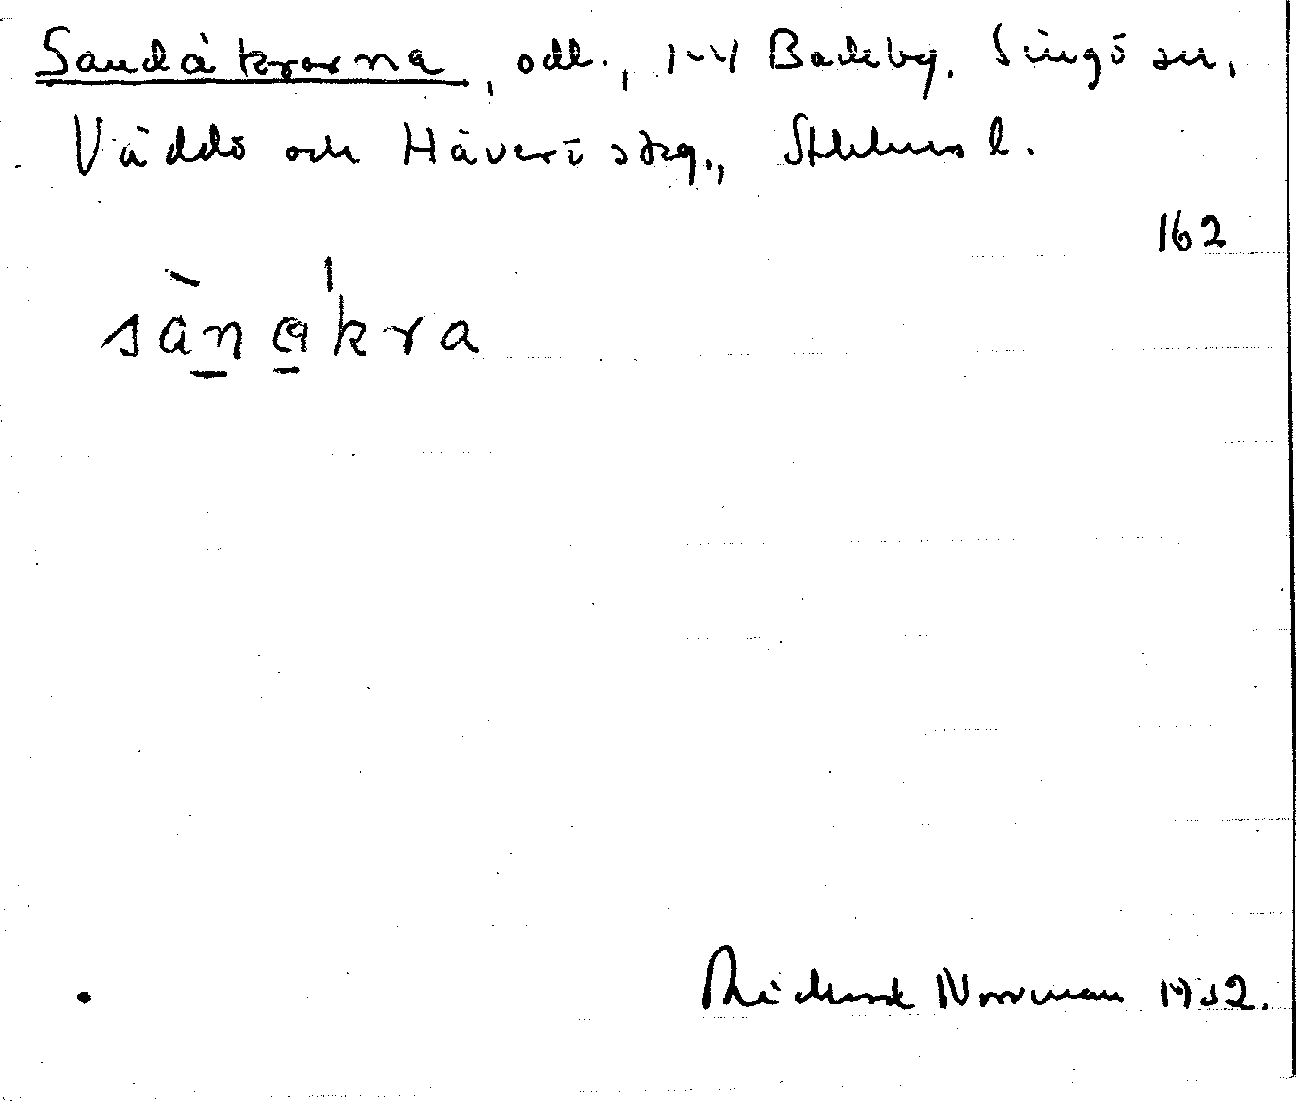 Sandåkrarna, odl., 1-4 Backby, Singö sn,
Väddö och Häverö skg., Sthlms l.
162
sànåkra
Rickard Norrman 1932.